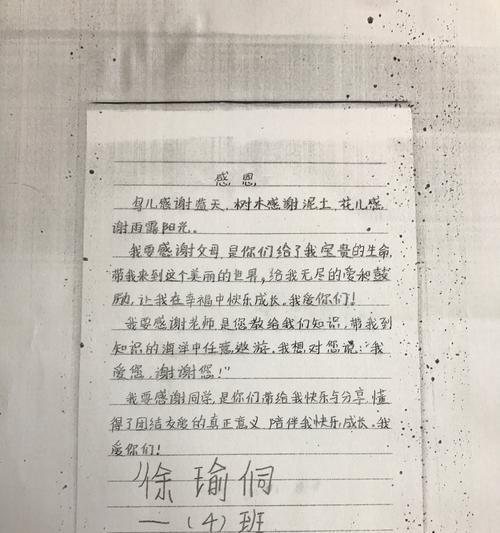 感恩
鸟儿感谢蓝天,树木感谢泥土,花儿感
谢雨露阳光。
我要感谢父母,是你们给了我宝贵的生命,
带我来到这个美丽的世界,给我无尽的爱和鼓
励,让我在幸福中快乐成长。我爱你们!
我要感谢老师,是您教给我们知识,带我到
知识的海洋中任意遨游。我想对您说:“我
爱您,谢谢您!”
我要感谢同学,是你们带给我快乐与分享,懂
得了团结友爱的真正意义,陪伴我快乐成长。我
爱你们!
徐瑜侗
一(4)班